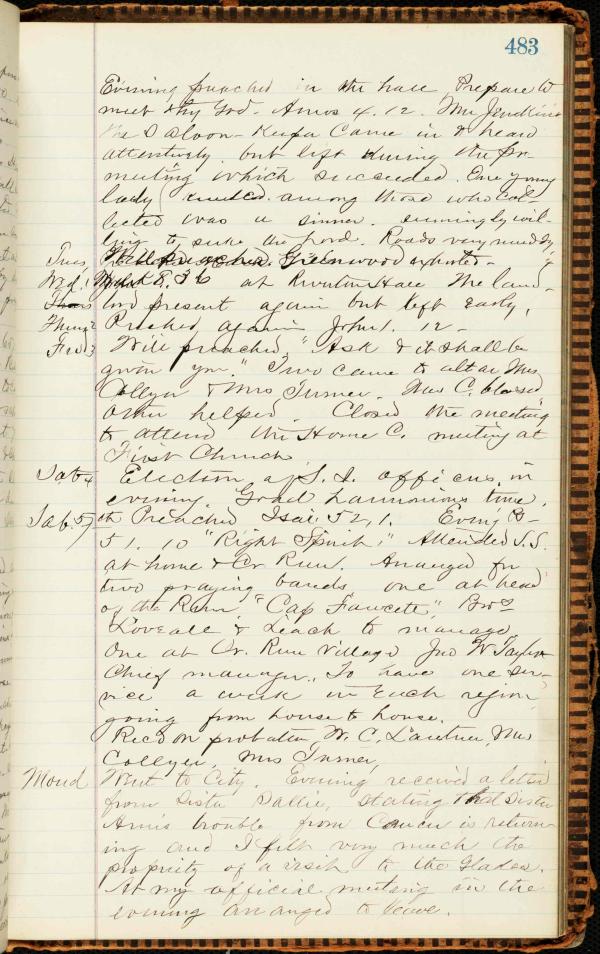 483
Evening preached in the hall Prepare to
meet thy God. Amos 4.12. Mr Jenkins
the Saloon-Keeper Came in & heard
attentively, but left during the pr.
meeting which succeeded. One young
lady kneeled among those who col-
lected was a sinner. seemingly wil-
ling to seek the Lord. Roads very muddy
Tues Greenwood exhorted -
Wed. 1 Mark 8, 36 at Riverton Hall The land-
lord present again but left early.
Thurs 2 Preached again John 1. 12 -
Fri 3 Will preached, "Ask & it shall be
given you." Two came to altar Mrs
Collyer & Mrs Turner. Mrs C. blessed
other helped. Closed the meeting
to attend the Home C. meeting at
First Church
Sat 4 Election of S. S. officers, in
evening Grand harmonious time.
Sab. 5th Preached Isai. 52,1. Evening Ps-
51. 10 "Right Spirit," Attended S.S.
at home & Cr Run. Arranged for
two praying bands one at head
of the Run, "Cap Fawcett," Bros
Loveall & Leach to manage
One at Cr. Run Village Jno W Taylor
Chief manager. To have one ser-
vice a week in each region
going from house to house.
Recd on probation W. C. Mrs
Collyer, Mrs Turner,
Mond Went to City. Evening received a letter
from Sister Sallie, stating that Sister
Ann's trouble from Cancer is return-
ing and I felt very much the
propriety of a visit to the Glades.
At my official meeting in the
evening arranged to leave.